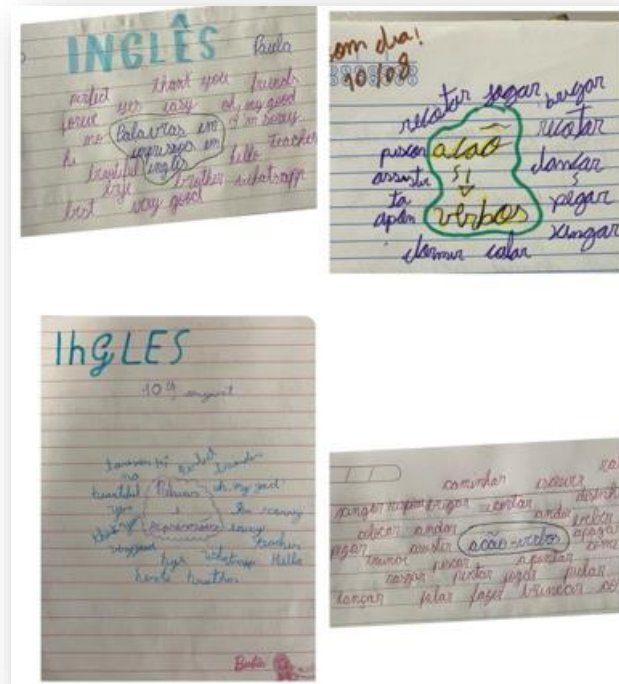 INGLÊS Paula
perfect thank you friends
forever yes easy oh, my good
no Palavras em I'm sorry
hi expressões em
beautiful inglês hello Teacher
bye brother whatsapp
best very good
om dia!
10/08
recotar jogar brigar
piscar ação recotar
assistir dançar
ta pegar
apon verbos xingar
dormir calar
INGLES
10th august
perfect friends
no
beautiful Palavras oh, my god!
yes e I'm sorry
expressões easy
very good Teacher
bye Whatsapp Hello
brother
caminhar escrever
xingar brigar recortar
colocar andar andar beber
pegar assistir ação-verbos apagar
piscar apontar
rasgar pintar jogar pular
falar fazer brincar